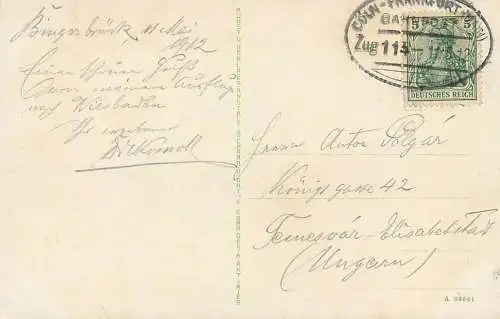 Bingerbrück, 11 Mai
1912
Einen schönen Gruß
von meinem Ausflug
nach Wiesbaden
Ihr ergebener
CÖLN-FRANKFURT
BAHNPOST
Zug 113
5 5
DEUTSCHES REICH
Herrn Anton Polgár
Königsgasse 42
Temesvár-Elisabethstadt
(Ungarn)
A 69841